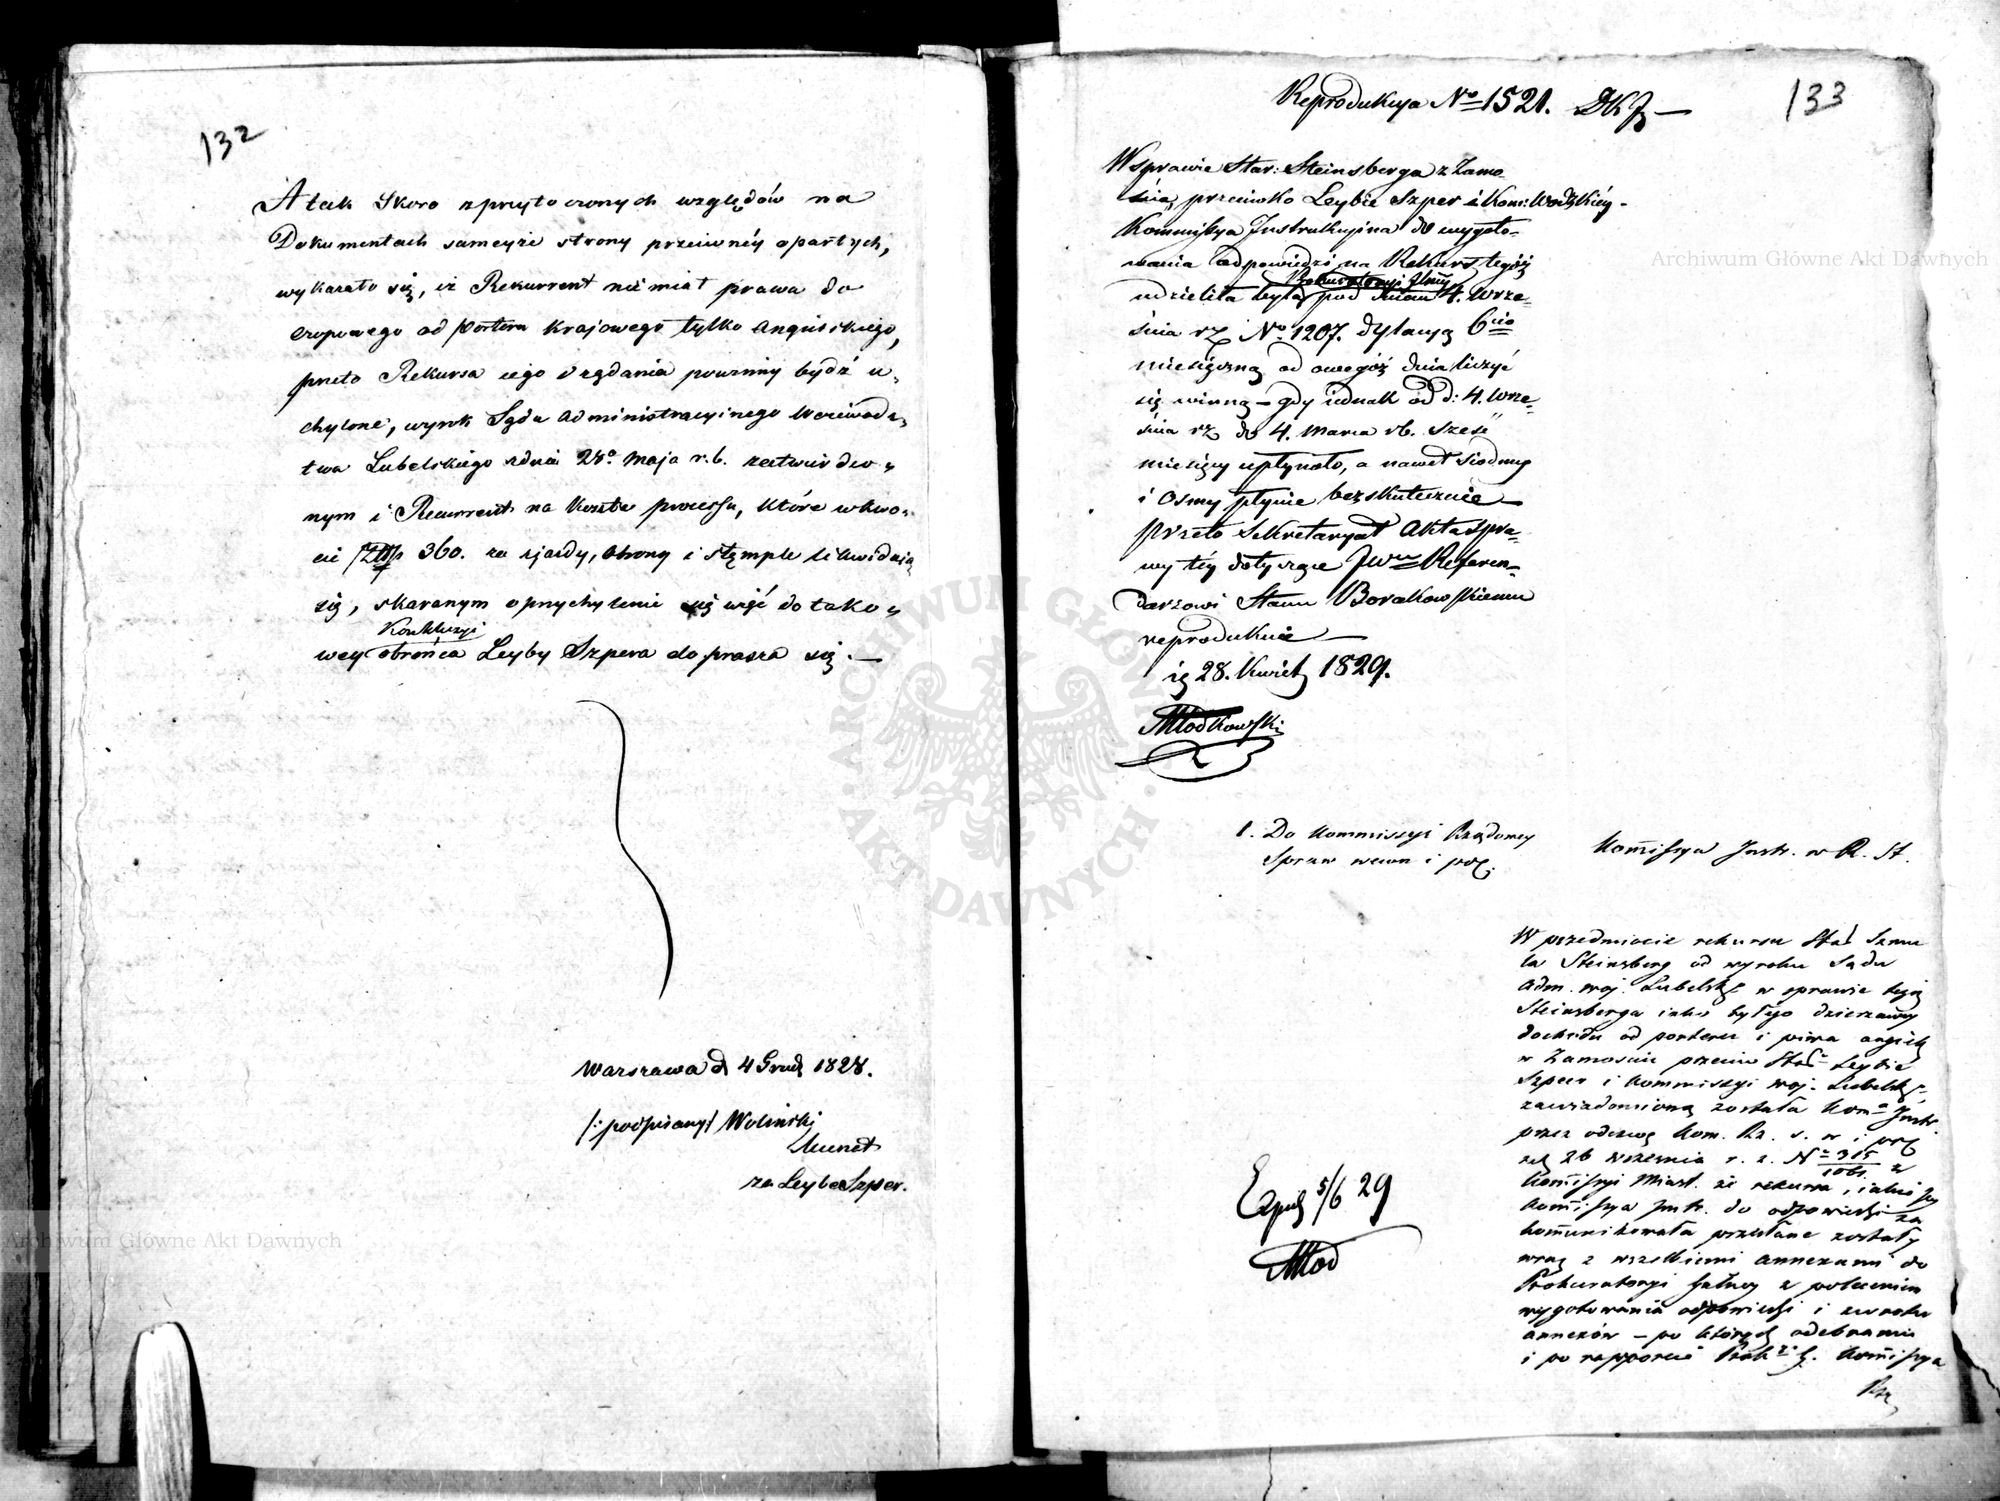 132
A tak skoro z przytoczonych względów na
Dokumentach sameyże strony przeciwnéy opartych,
wykazało się, iż Rekurrent nie miał prawa do
czopowego od porteru krajowego tylko Angielskiego,
przeto Rekursa iego i żądania powinny bydź u-
chylone, wyrok Sądu Administracyinego Woiewódz-
twa Lubelskiego z dnia 28º Maja r.b. zatwierdzo-
nym i Recurrent na koszta processu, które w kwo-
cie Złtp 360. za zjazdy, obrony i stęmple likwiduią
się, skazanym o przychylenie się więc do tako-
Konkluzyi
wey obrońca Leyby Szpera doprasza się. —
Warszawa d. 4 Grud. 1828.
/: podpisany :/ Woliński
Mecenat
za Leybę Szper.
133
Reprodukcya Nº 1521.
W sprawie Star: Steinsberga z Zamo-
ścia, przeciwko Leybie Szper i Kom: Wodzkiéy -
Kommissya Instrukcyina do wygoto-
wania odpowiedzi na Rekurs tegóż
Prokuratoryi Glnéy
udzieliła była pod dniem 4. Wrze-
śnia rz Nº 1207. dylacyą 6cio
miesięczną od owegóż dnia liczyć
się winną – gdy iednak od d: 4. Wrze-
śnia rz do 4. Marca rb. sześć
miesięcy upłynęło, a nawet siódmy
i ósmy płynie bezskutecznie —
przeto Sekretaryat Akta spra-
wy téy dotyczące JWmu Referen-
darzowi Stanu Borakowskiemu
reprodukuie —
28. Kwiet 1829.
Młodkowski
1. Do Kommissyi Rządowey
Spraw wewn i pol.
Kommissya Instr. w R. St.
W przedmiocie rekursu Star Szmu
la Steinsberg od wyroku Sądu
Adm. woj. Lubelskgo w sprawie tegoż
Steinsberga iako byłego dzierżawcy
dochodu od porteru i piwa angiels
w Zamościu przeciw Star Leybie
Szper i Kommissyi woj. Lubelskgo
zawiadomioną została Koma Instr.
przez odezwę Kom. Rz. s. w i pol
26 września r. z. Nº
Kommissyi Miast. że rekursa, iakie iey
Kommissya Instr. do odpowiedzi za
komunikowała przesłane zostały
wraz z wszelkiemi annexami do
Prokuratoryi Jalney z poleceniem
wygotowania odpowiedzi i zwrotu
annexów – po których odebraniu
i po rapporcie Prokryi J. Kommissya
Rzą
Exped 5/6 29
Młod
Archiwum Główne Akt Dawnych
Archiwum Główne Akt Dawnych
ARCHIWUM GŁÓWNE · AKT DAWNYCH ·